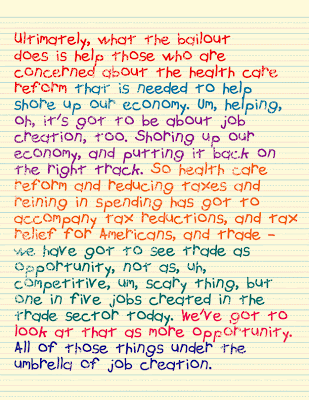 Ultimately, what the bailout
does is help those who are
concerned about the health care
reform that is needed to help
shore up our economy. Um, helping,
oh, it's got to be about job
creation, too. Shoring up our
economy, and putting it back on
the right track. So health care
reform and reducing taxes and
reining in spending has got to
accompany tax reductions, and tax
relief for Americans, and trade -
we have got to see trade as
opportunity, not as, uh,
competitive, um, scary thing, but
one in five jobs created in the
trade sector today. We've got to
look at that as more opportunity.
All of those things under the
umbrella of job creation.